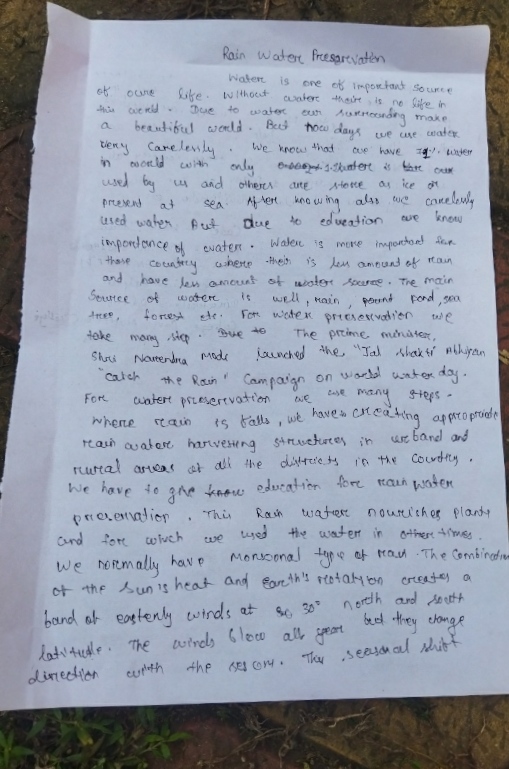 Rain Water Preserevation
Water is one of important source
of oure life. Without water their is no life in
this world. Due to water our surrounding make
a beautiful world. But now days we use water
very carelessly. We know that we have water
in world with only water is
used by us and others are store as ice or
present at sea. After knowing also we carelessly
used water But due to education we know
importance of water. Water is more important for
those country where their is less amount of rain
and have less amount of water source. The main
Source of water is well, rain, pond, sea
tree, forest etc. For water preservation we
take many step. Due to The prime minister,
Shri Narendra Modi launched the "Jal shakti Abhijan
"Catch the Rain" Campaign on world water day.
For water preservation we use many steps.
where rain is falls, we have creating appropriate
rain water harvesting structures in urband and
rural areas of all the districts in the Country.
We have to give education fore rain water
preservation. This Rain water nourishes plants
and for which we used the water in other times.
We normally have Monsoonal type of rain. The Combination
of the Sun's heat and earth's rotation creates a
band of easterly winds at 30° north and south
latitude. The winds blow all year but they change
direction with the This seasonal shift